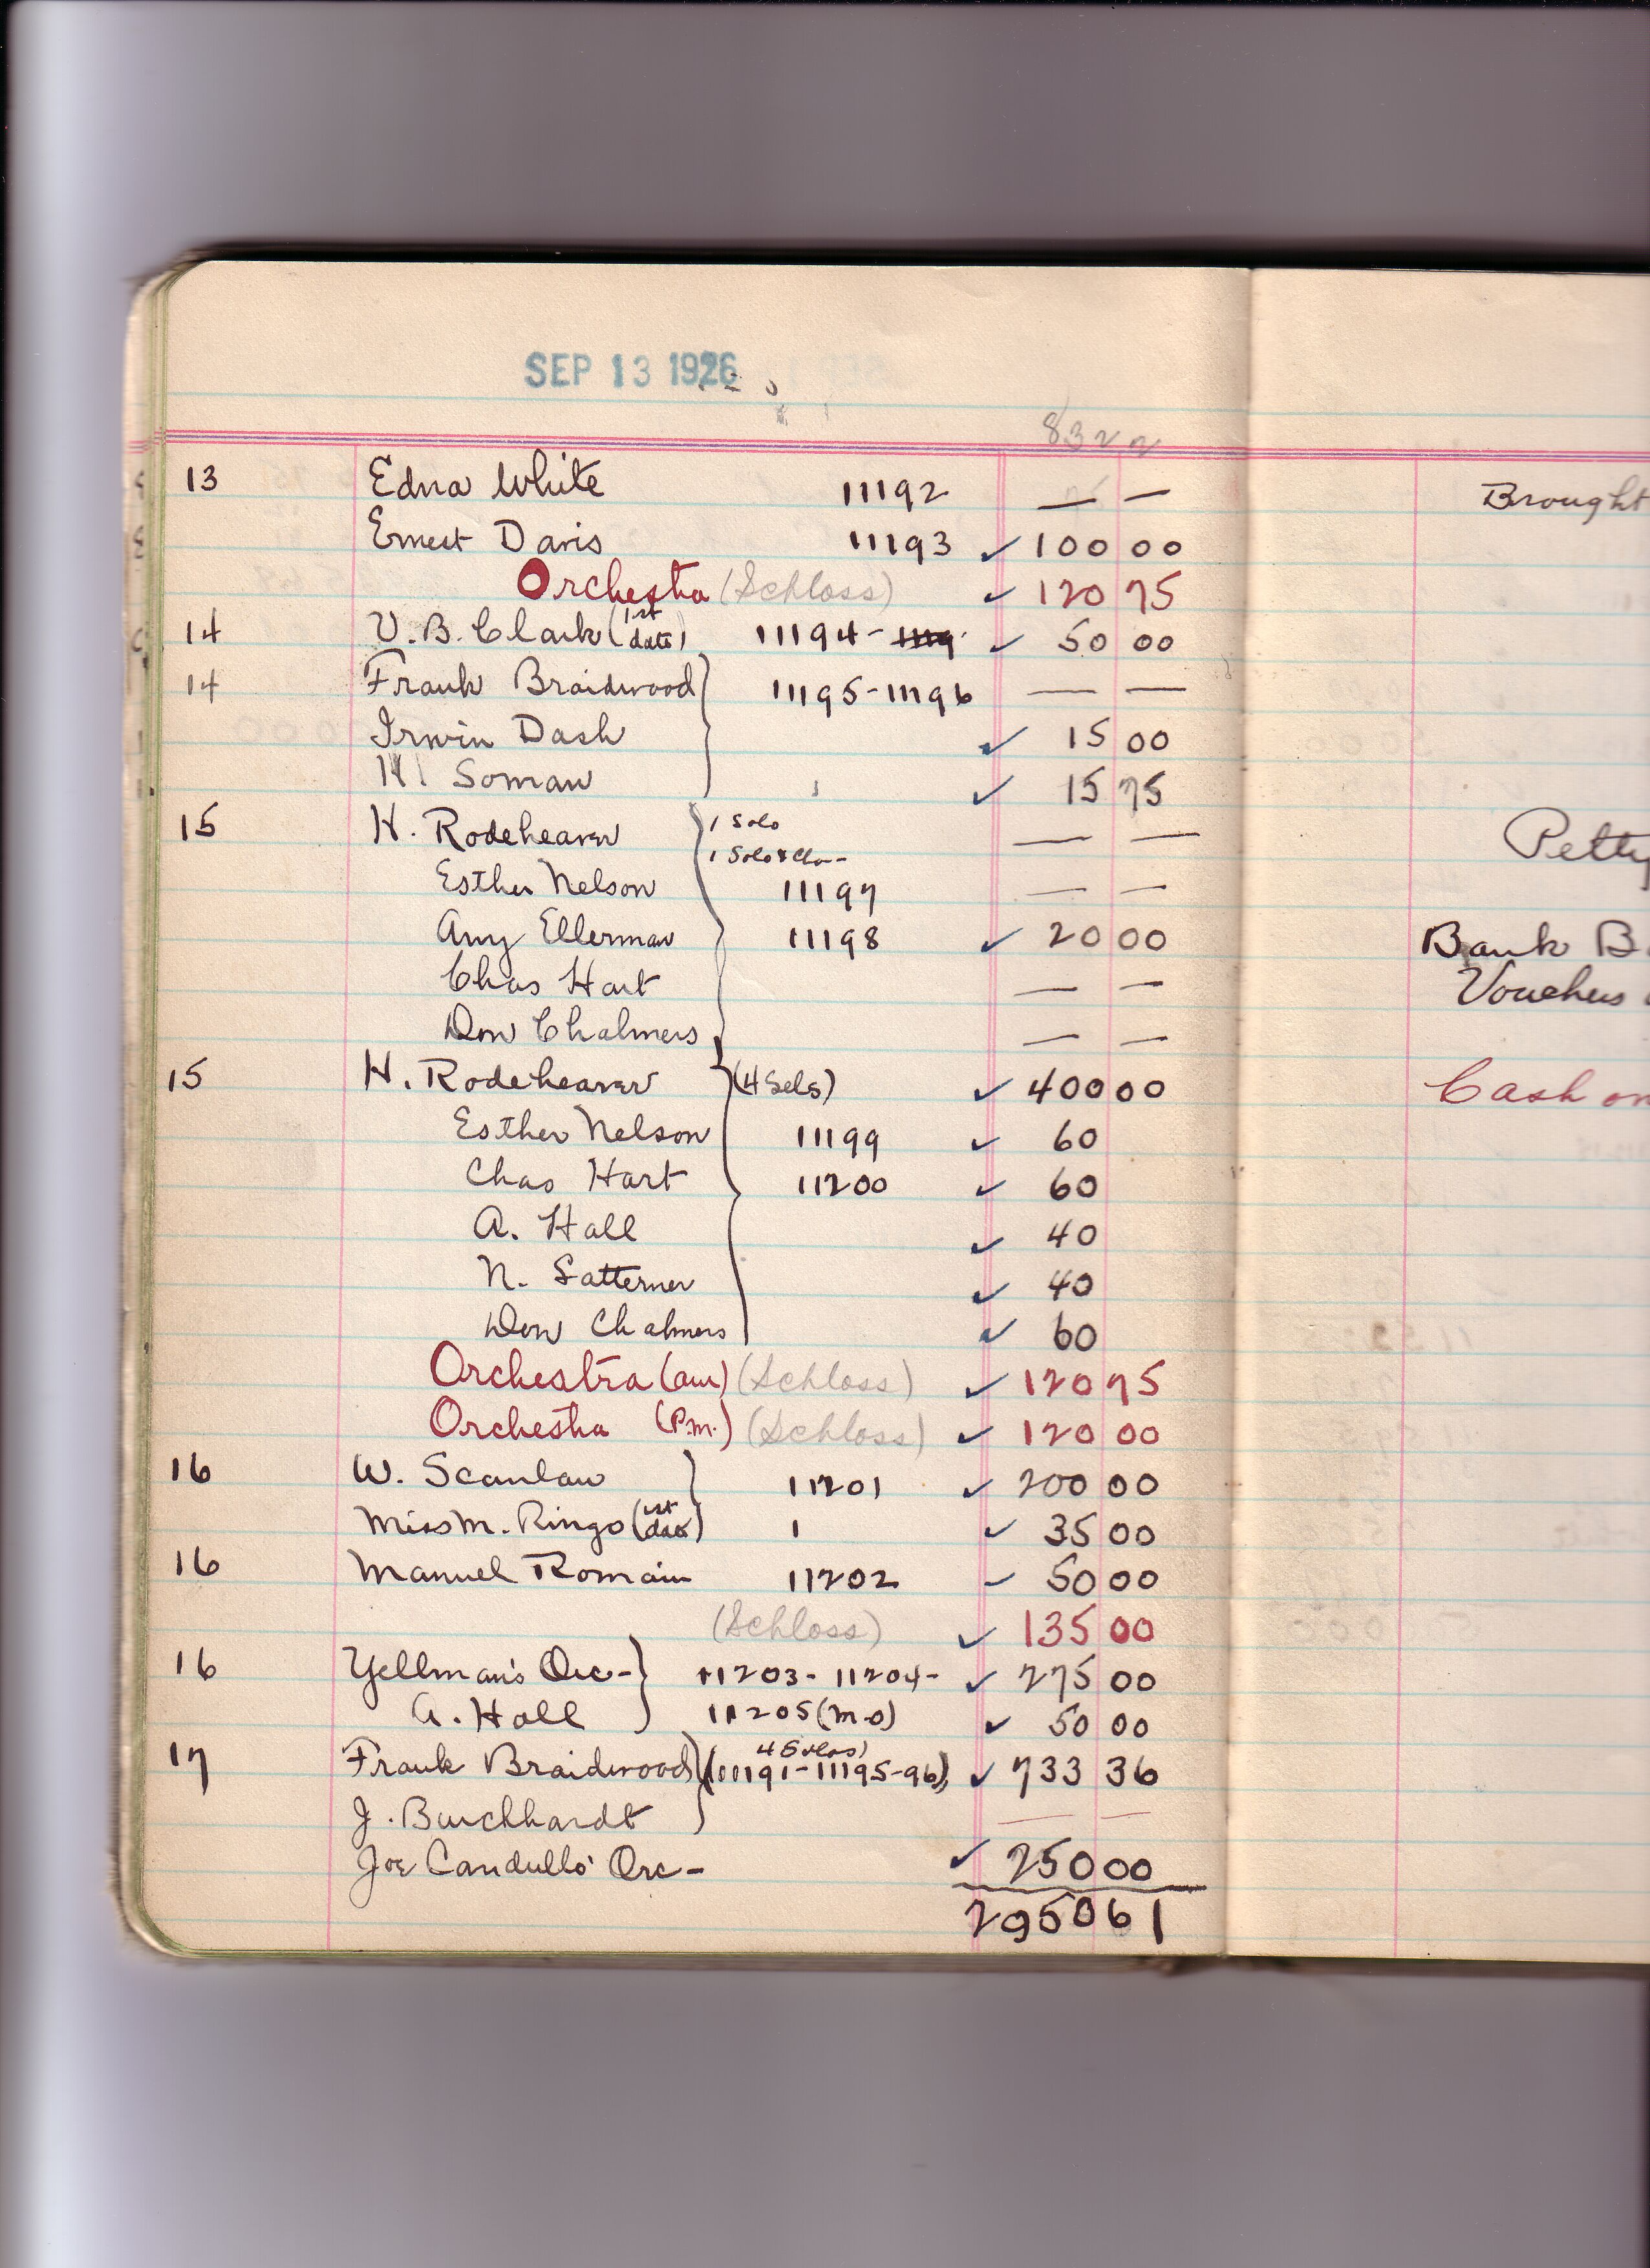 SEP 13 1926
8322
13 Edna White 11192 — —
Ernest Davis 11193 ✓ 100 00
Orchestra (Schloss) ✓ 120 75
14 V. B. Clark (1st date) 11194- ✓ 50 00
14 Frank Braidwood 11195-11196 — —
Irwin Dash ✓ 15 00
H. Soman ✓ 15 75
15 H. Rodeheaver 1 Solo — —
1 Solo & Cho-
Esther Nelson 11197 — —
Amy Ellerman 11198 ✓ 20 00
Chas Hart — —
Don Chalmers — —
15 H. Rodeheaver (4 Sels) ✓ 400 00
Esther Nelson 11199 ✓ 60
Chas Hart 11200 ✓ 60
A. Hall ✓ 40
N. Satterner ✓ 40
Don Chalmers ✓ 60
Orchestra (am) (Schloss) ✓ 120 75
Orchestra (P.m.) (Schloss) ✓ 120 00
16 W. Scanlan 11201 ✓ 200 00
Miss M. Ringo (1st date) ✓ 35 00
16 Manuel Romain 11202 ✓ 50 00
(Schloss) ✓ 135 00
16 Yellman's Orc- 11203- 11204- ✓ 275 00
A. Hall 11205 (M-O) ✓ 50 00
17 Frank Braidwood (4 Solos) (11191-11195-96) ✓ 733 36
J. Burckhardt — —
Joe Candullo' Orc- ✓ 250 00
2950 61
Brought
Petty
Bank
Vouchers
Cash on